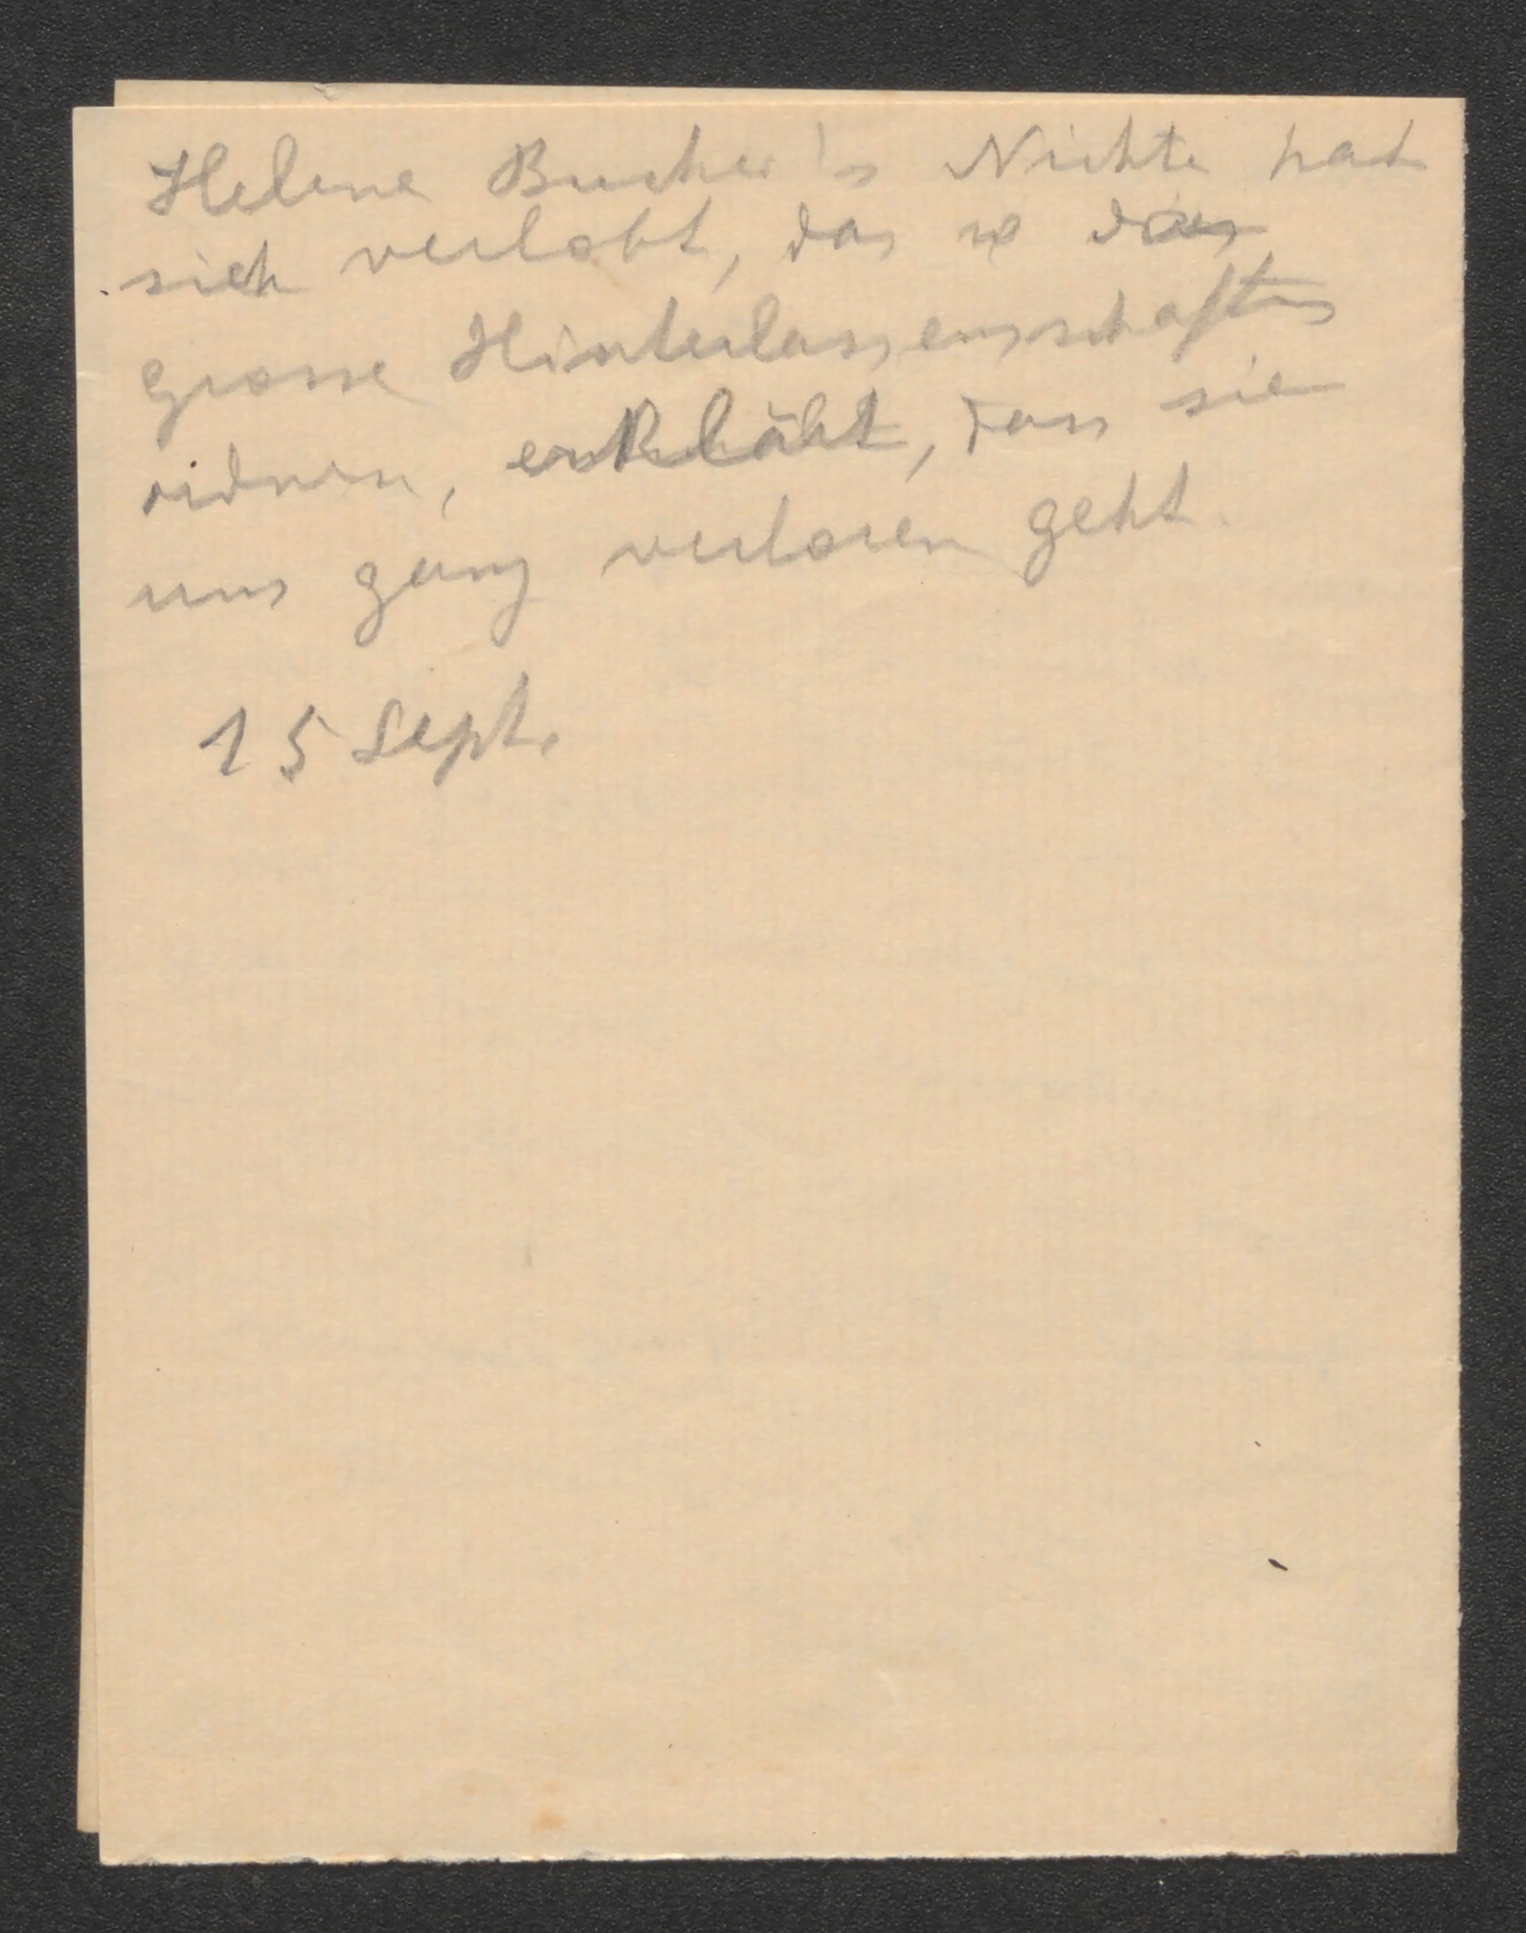 Helene Bucher's Nichte hat
sich verlobt, das so das
grosse Hinterlassenschaften
ordnen, erklärt, dass sie
uns ganz verloren geht.
15 Sept.